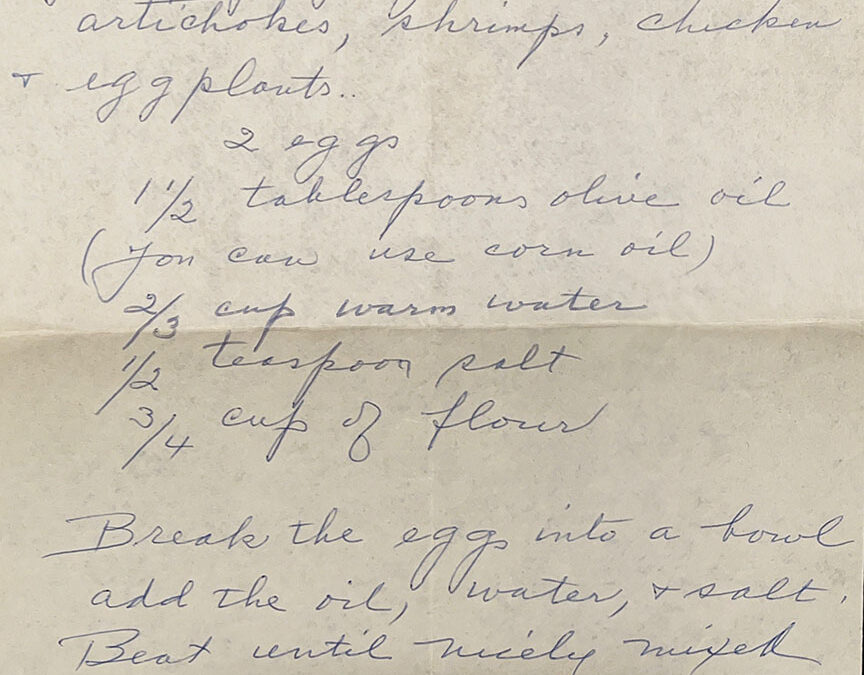 artichokes, shrimps, chicken
+ eggplants..
2 eggs
1 1/2 tablespoons olive oil
(you can use corn oil)
2/3 cup warm water
1/2 teaspoon salt
3/4 cup of flour
Break the eggs into a bowl
add the oil, water, + salt.
Beat until nicely mixed